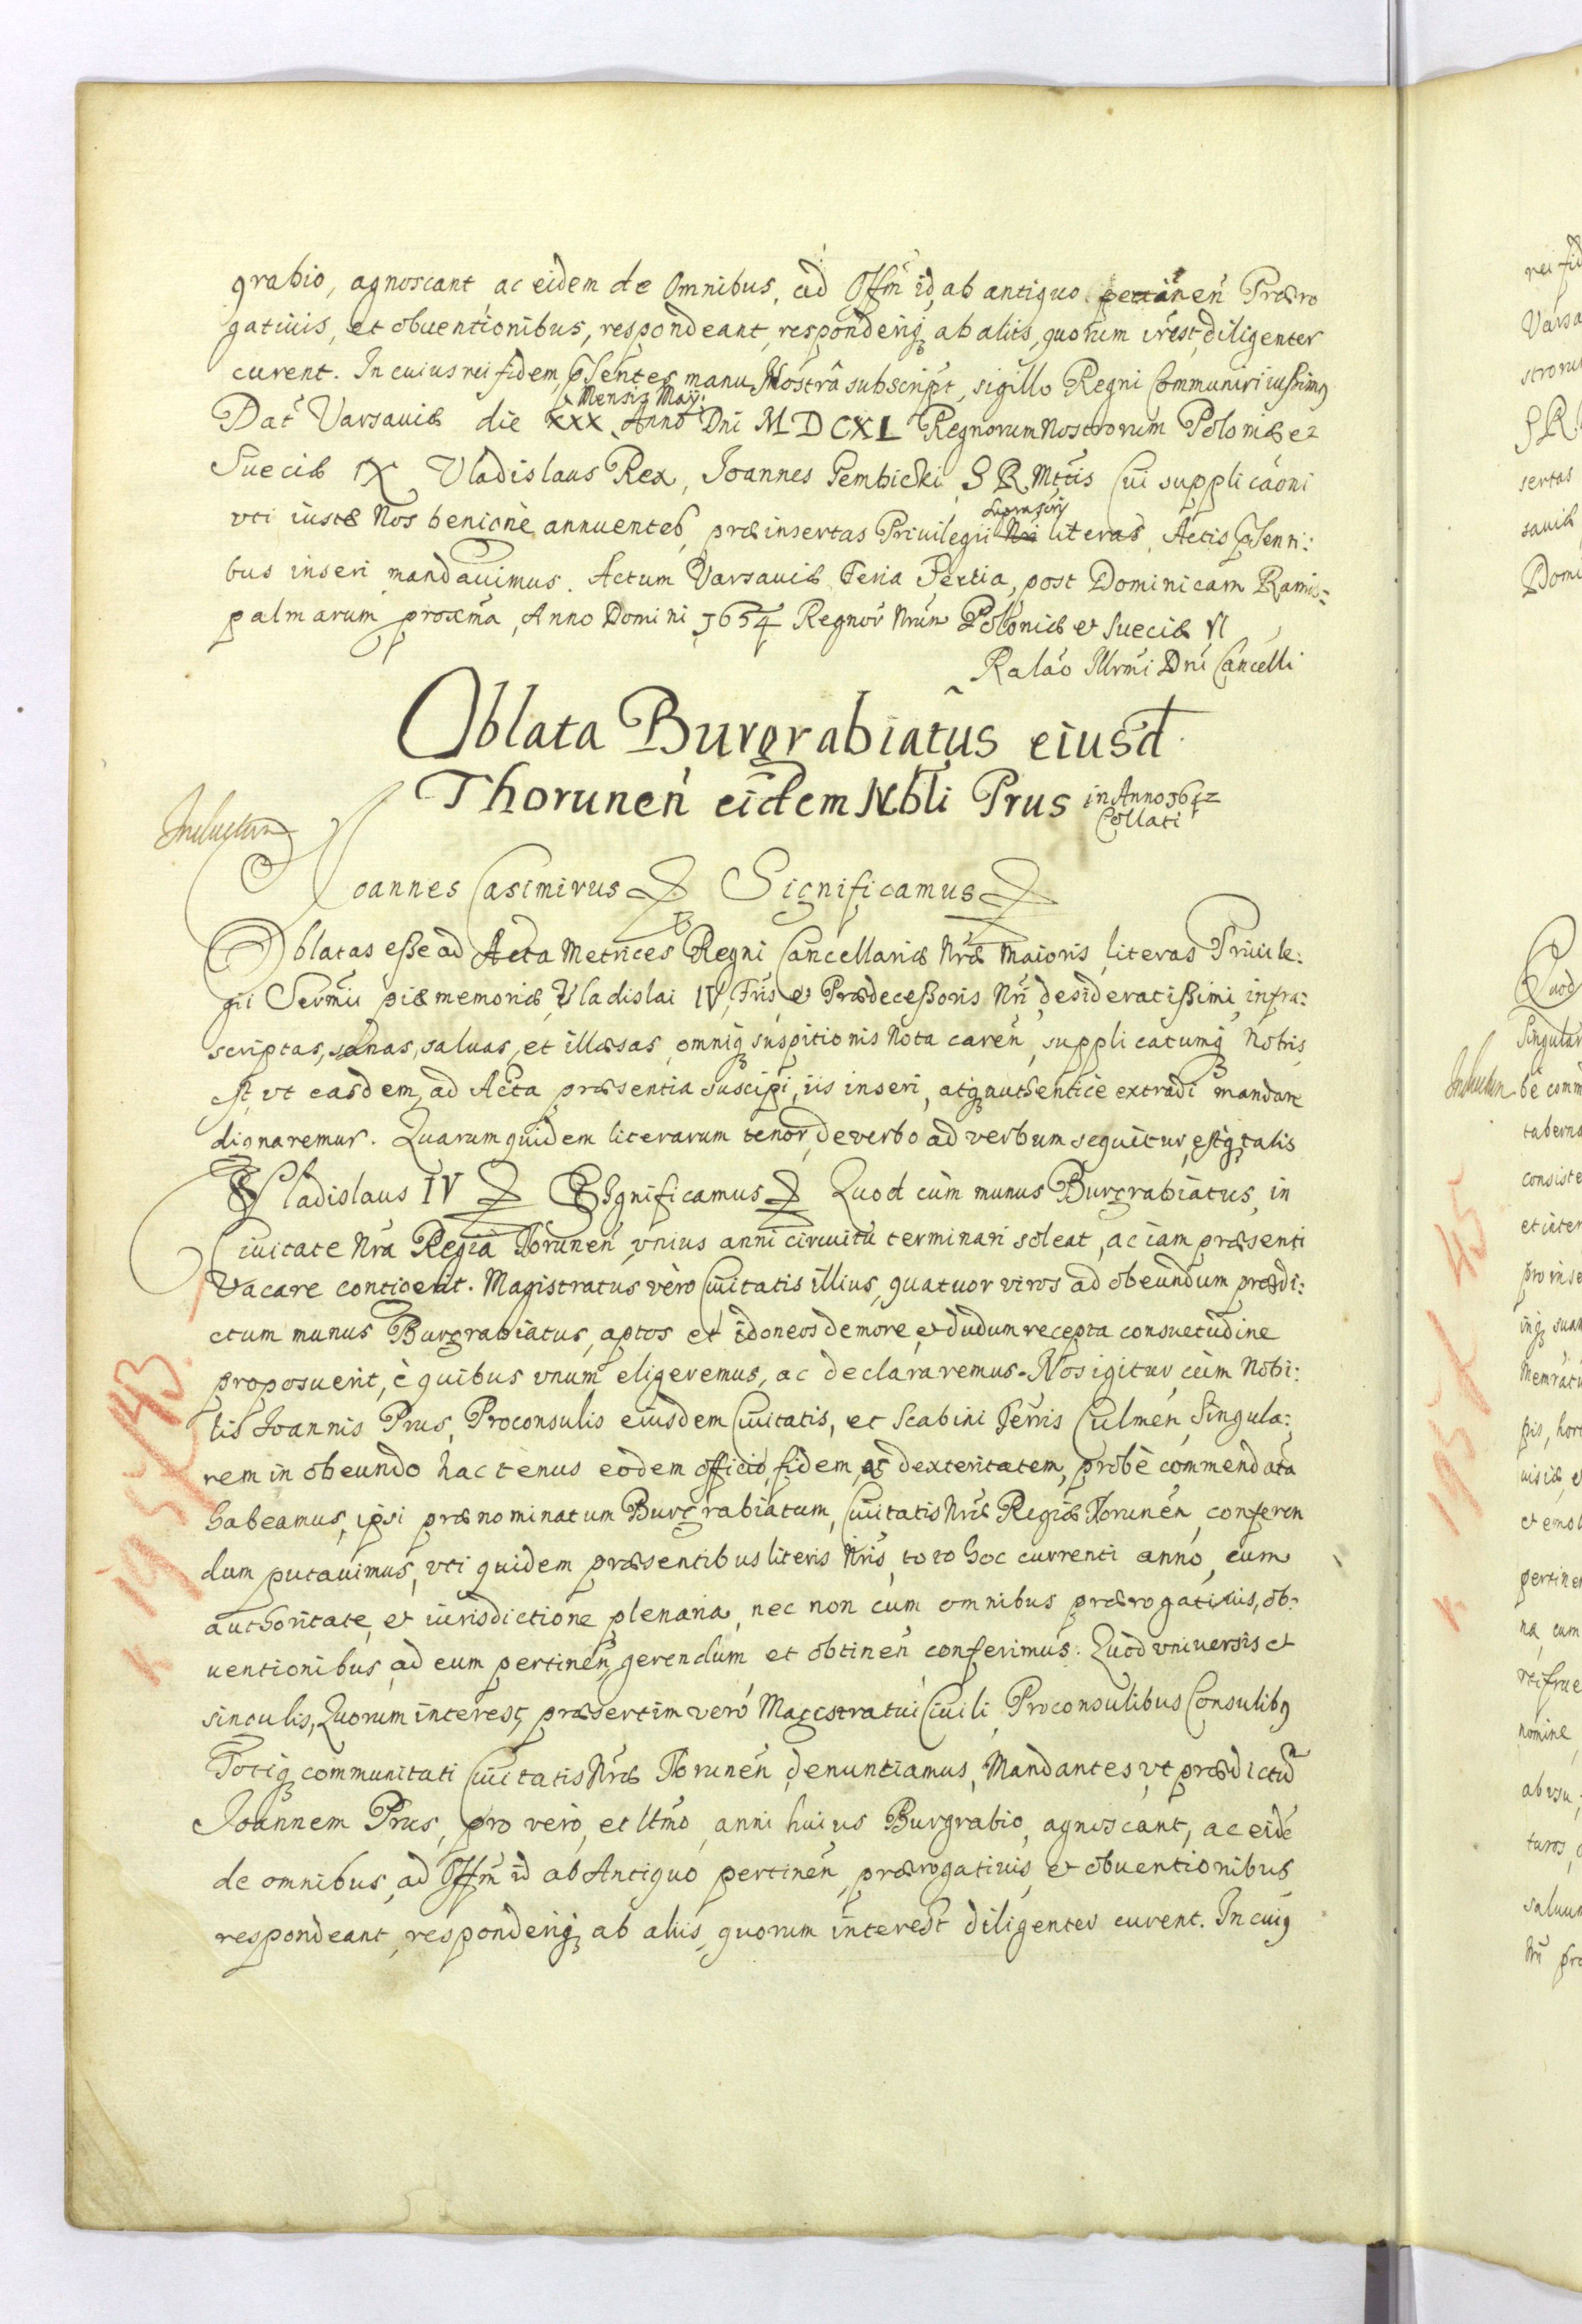 grabio, agnoscant ac eidem de Omnibus, ad Offm̃ id, ab antiquo pertinen̄ Præro
gatiuis, et obuentionibus, respondeant, responderiq; ab aliis, quorum intest, diligenter
curent. In cuius rei fidem p̃sentes manu Nostrâ subscript, sigillo Regni Communiri iussimq
Mensis Maij
Dat̄ Varsauiæ die XXX Anno Dni MDCXL Regnorum Nostrorum Poloniæ et
Sueciæ IX Vladislaus Rex, Joannes Gembicki S R Mttis Cui supplicaõni
suprascr
vti iustæ Nos benignè annuentes, præinsertas Priuilegii Nri literas, Actis p̃senti:
bus inseri mandauimus. Actum Varsauiæ Feria Tertia, post Dominicam Ramis=
palmarum proxĩma, Anno Domini 1654 Regnor̃ Nrũn Poloniæ et Sueciæ VI
Ralão Illrmi Dni Cancelli
Oblata Burgrabiatus eiusd
Thorunen̄ eidem Nbli Prus in Anno 1642
Collati
Inductum
Joannes Casimirus Significamus
Oblatas esse ad Acta Metrices Regni Cancellariæ Nræ Maioris, literas Priuile:
gii Sermii piæ memoriæ Vladislai IV, Fris et Prædecessoris Nri desideratissimi, infra:
scriptas, sanas, saluas, et illæsas omniq; suspitionis nota caren̄, supplicatumq; Nobis
est, vt easdem, ad Acta præsentia suscipi, iis inseri, atq; authenticè extradi mandare
dignaremur. Quarum quidem literarum tenor, de verbo ad verbum sequitur, estq; talis
Vladislaus IV Significamus Quod cùm munus Burgrabiatus, in
Ciuitate Nra Regia Torunen̄ vnius anni circuitu terminari soleat, ac iam præsenti
Vacare contigerit. Magistratus vèro Ciuitatis illius, quatuor viros ad obeundum prædi:
ctum munus Burgrabiatus, aptos et idoneos de more, et dudum recepta consuetudine
proposuerit, è quibus vnum eligeremus, ac declararemus. Nos igitur cùm Nobi:
lis Joannis Prus, Proconsulis eiusdem Ciuitatis, et Scabini Terris Culmen̄, Singula:
rem in obeundo hactenus eodem officio, fidem, ac dexteritatem, probè commendata
habeamus, ipsi prænominatum Burgrabiatum, Ciuitatis Nræ Regiæ Torunen̄, conferen
dum putauimus, vti quidem præsentibus literis Nris, toto hoc currenti anno, cum
authoritate, et iurisdictione plenaria, nec non cum omnibus prærogatiuis, ob:
uentionibus, ad eum pertinen̄, gerendum et obtinen̄ conferimus. Quod vniuersis et
singulis, Quorum interest, præsertim verò Magistratui Ciuili, Proconsulibus Consulibq
Totiq; communitati Ciuitatis Nræ Torunen̄ denuntiamus, Mandantes vt prædictũ
Joannem Prus, pro vero, et ltmo, anni huius Burgrabio, agnoscant, ac eidẽ
de omnibus, ad Offm̃ id ab Antiquo pertinen̄, prærogatiuis, et obuentionibus
respondeant, responderiq; ab aliis, quorum interest diligenter curent. In cuiq
K 195 f 43
Inductum
K 195 f 45